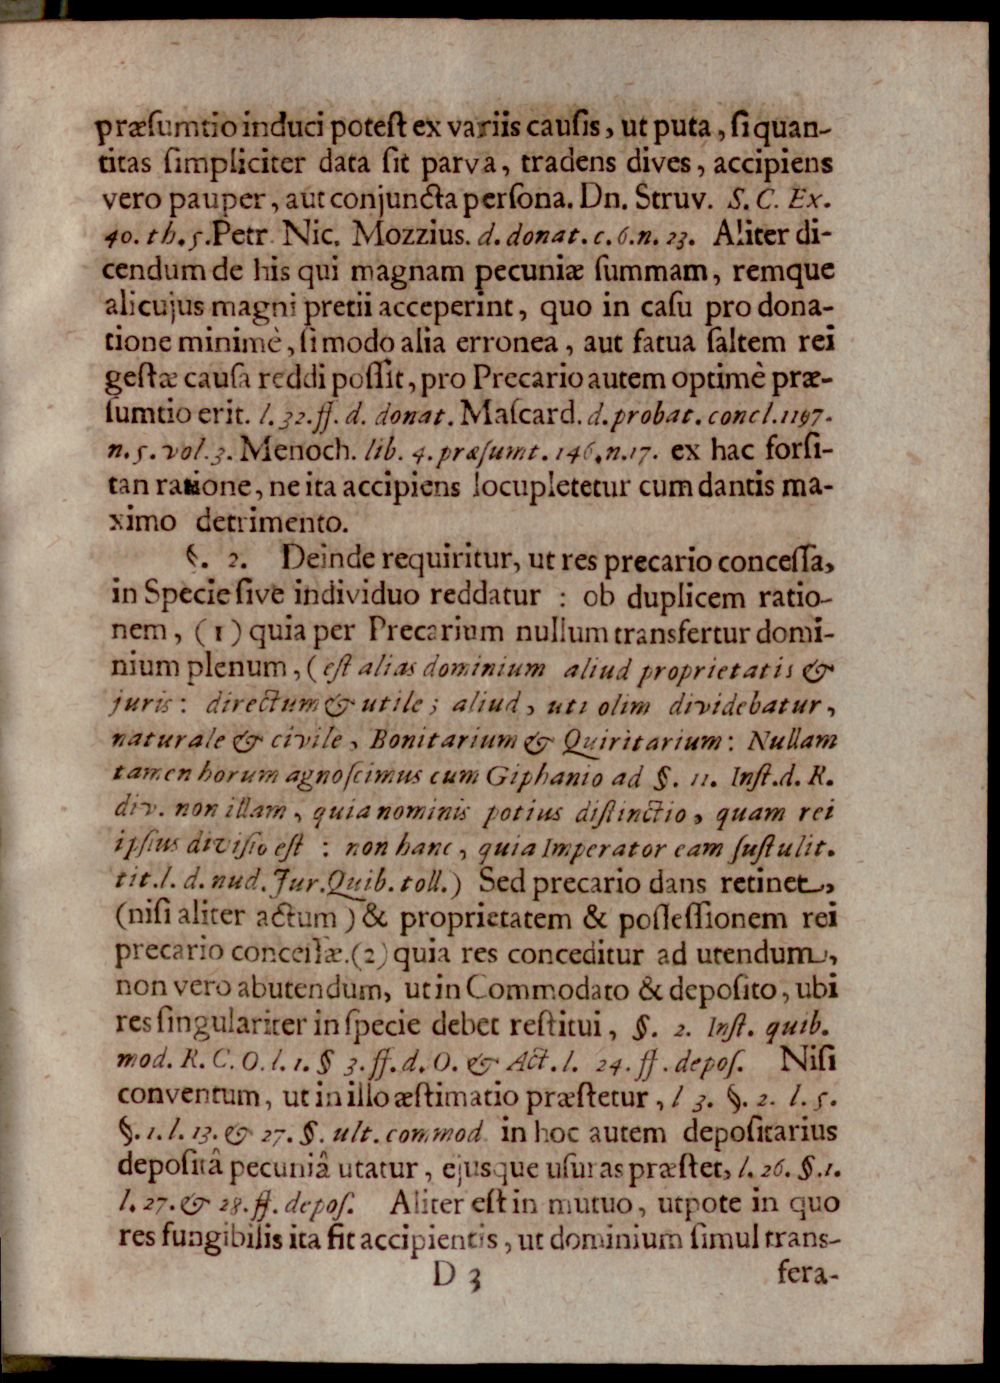 præſumtio induci poteſt ex variis cauſis, ut puta, ſi quan-
titas ſimpliciter data ſit parva, tradens dives, accipiens
vero pauper, aut conjuncta perſona. Dn. Struv. S. C. Ex.
40. th. 5. Petr. Nic. Mozzius. d. donat. c. 6. n. 23. Aliter di-
cendum de his qui magnam pecuniæ ſummam, remque
alicujus magni pretii acceperint, quo in caſu pro dona-
tione minimè, ſi modo alia erronea, aut fatua ſaltem rei
geſtæ cauſa reddi poſſit, pro Precario autem optimè præ-
ſumtio erit. l. 32. ff. d. donat. Maſcard. d. probat. concl. 1197.
n. 5. vol. 3. Menoch. lib. 4. præſumt. 146. n. 17. ex hac forſi-
tan ratione, ne ita accipiens locupletetur cum dantis ma-
ximo detrimento.
§. 2. Deinde requiritur, ut res precario conceſſa,
in Specie ſive individuo reddatur : ob duplicem ratio-
nem, (1) quia per Precarium nullum transfertur domi-
nium plenum, (eſt alias dominium aliud proprietatis &
juris: directum & utile; aliud, uti olim dividebatur,
naturale & civile, Bonitarium & Quiritarium: Nullam
tamen horum agnoſcimus cum Giphanio ad §. 11. Inſt. d. R.
div. non illam, quia nominis potius diſtinctio, quam rei
ipſius diviſio eſt : non hanc, quia Imperator eam ſuſtulit.
tit. l. d. nud. Jur. Quib. toll.) Sed precario dans retinet,
(niſi aliter actum) & proprietatem & poſſeſſionem rei
precario conceſſæ. (2) quia res conceditur ad utendum,
non vero abutendum, ut in Commodato & depoſito, ubi
res ſingulariter in ſpecie debet reſtitui, §. 2. Inſt. quib.
mod. R. C. O. l. 1. § 3. ff. d. O. & Act. l. 24. ff. depoſ. Niſi
conventum, ut in illo æſtimatio præſtetur, l 3. §. 2. l. 5.
§. 1. l. 13. & 27. §. ult. commod. in hoc autem depoſitarius
depoſitâ pecuniâ utatur, ejusque uſuras præſtet, l. 26. §. 1.
l. 27. & 28. ff. depoſ. Aliter eſt in mutuo, utpote in quo
res fungibilis ita fit accipientis, ut dominium ſimul trans-
D 3 fera-